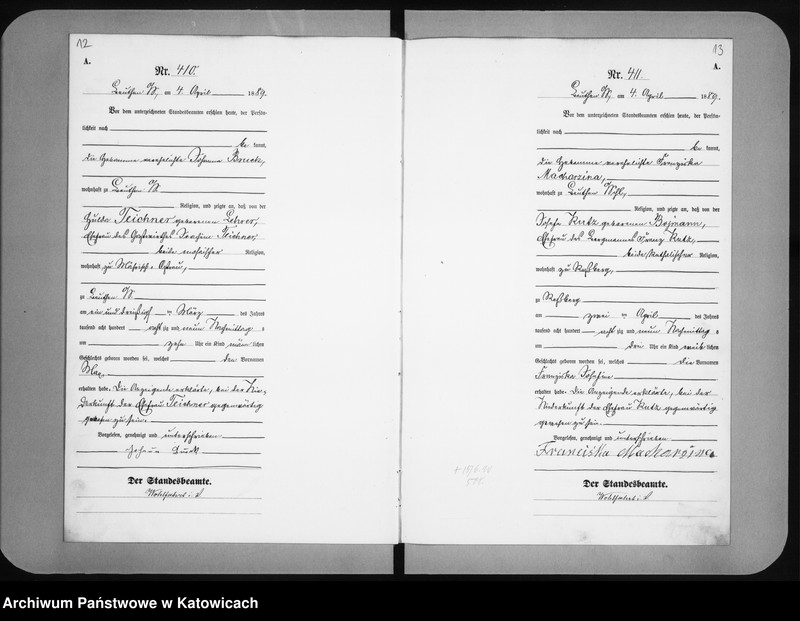 12
A.
Nr. 410.
Beuthen O/S, am 4. April 1889.
Vor dem unterzeichneten Standesbeamten erschien heute, der Persön-
lichkeit nach
be kannt,
die Hebamme verehelichte Johanna Brueck,
wohnhaft zu Beuthen O/S.
Religion, und zeigte an, daß von der
Hulda Teichner geborenen Lehrer,
Ehefrau des Gastwirthes Joachim Teichner,
beide mosaischer Religion,
wohnhaft zu Mährisch-Ostrau,
zu Beuthen O/S.
am ein und dreißigsten März des Jahres
tausend acht hundert achtzig und neun Nachmittag s
um zehn Uhr ein Kind männlichen
Geschlechts geboren worden sei, welches den Vornamen
Max
erhalten habe. Die Anzeigende erklärte, bei der Nie-
derkunft der Ehefrau Teichner gegenwärtig
gewesen zu sein.
Vorgelesen, genehmigt und unterschrieben
Der Standesbeamte.
13
A.
Nr. 411.
Beuthen O/S, am 4. April 1889.
Vor dem unterzeichneten Standesbeamten erschien heute, der Persön-
lichkeit nach
be kannt,
die Hebamme verehelichte Franziska
Macharzina,
wohnhaft zu Beuthen
Religion, und zeigte an, daß von der
Josefa Kutz geborenen Bojmann,
Ehefrau des Bergmannes Franz Kutz,
beide katholischer Religion,
wohnhaft zu Roßberg,
zu Roßberg
am zwei ten April des Jahres
tausend acht hundert achtzig und neun Nachmittag s
um drei Uhr ein Kind weiblichen
Geschlechts geboren worden sei, welches die Vornamen
Franziska Josefine
erhalten habe. Die Anzeigende erklärte, bei der
Niederkunft der Ehefrau Kutz gegenwärtig
gewesen zu sein.
Vorgelesen, genehmigt und unterschrieben
Franciska Macharzina
Der Standesbeamte.
Archiwum Państwowe w Katowicach